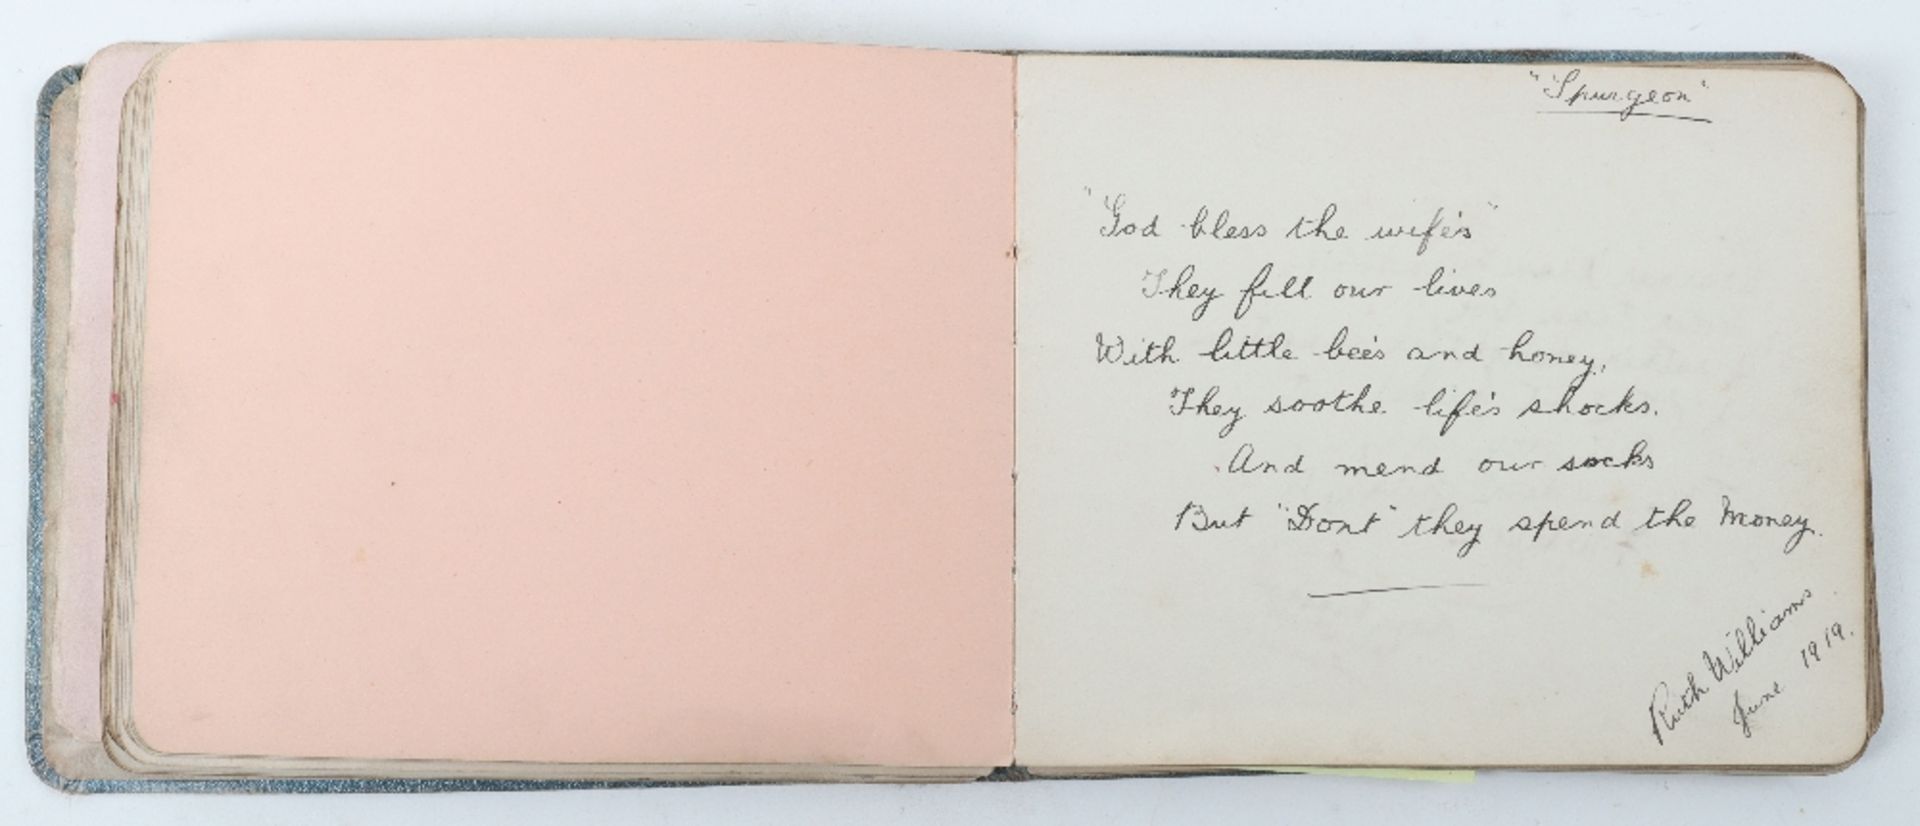 "Spurgeon"
"God bless the wife's"
They fill our lives
With little bee's and honey,
They soothe life's shocks.
And mend our socks
But "Dont" they spend the Money.
Ruth Williams
June 1919.